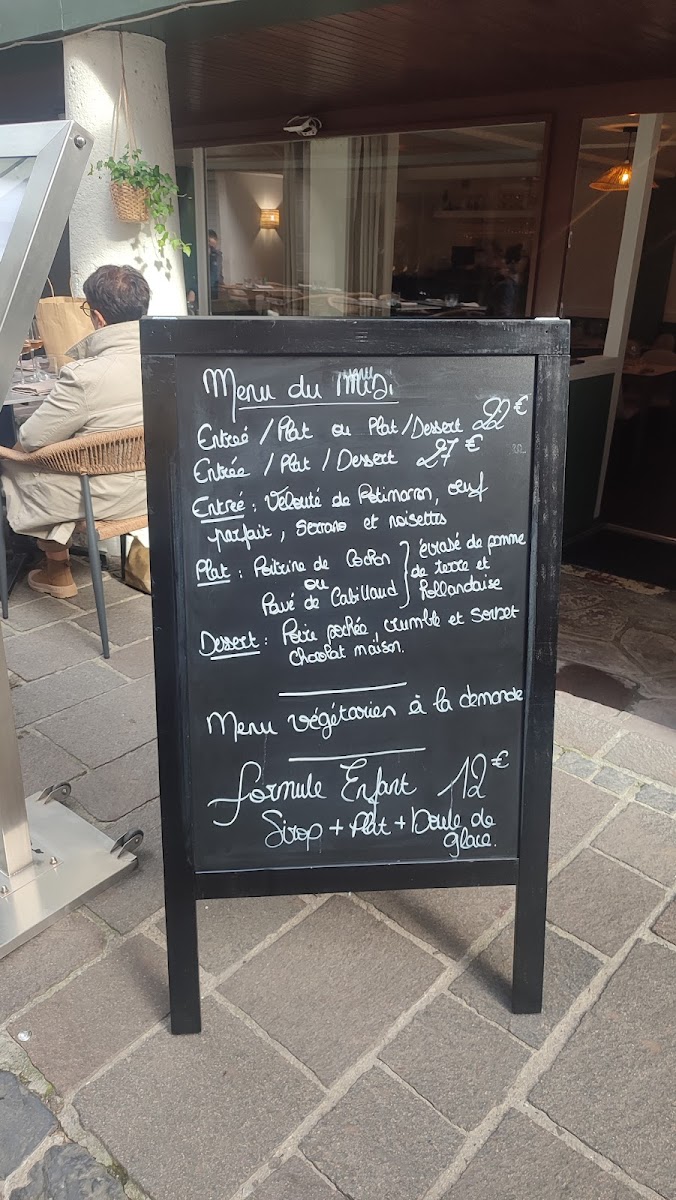 Menu du Midi
Entreé / Plat ou Plat / Dessert 22 €
Entrée / Plat / Dessert 27 €
Entreé : Velouté de Potimaron, œuf
parfait, Serrano et noisettes
Plat : Poitrine de Cochon
ou
Pavé de Cabillaud
écrasé de pomme
de terre et
Hollandaise
Dessert : Poire pochée, crumble et sorbet
chocolat maison.
Menu végétarien à la demande
formule Enfant 12 €
Sirop + Plat + Boule de
glace.